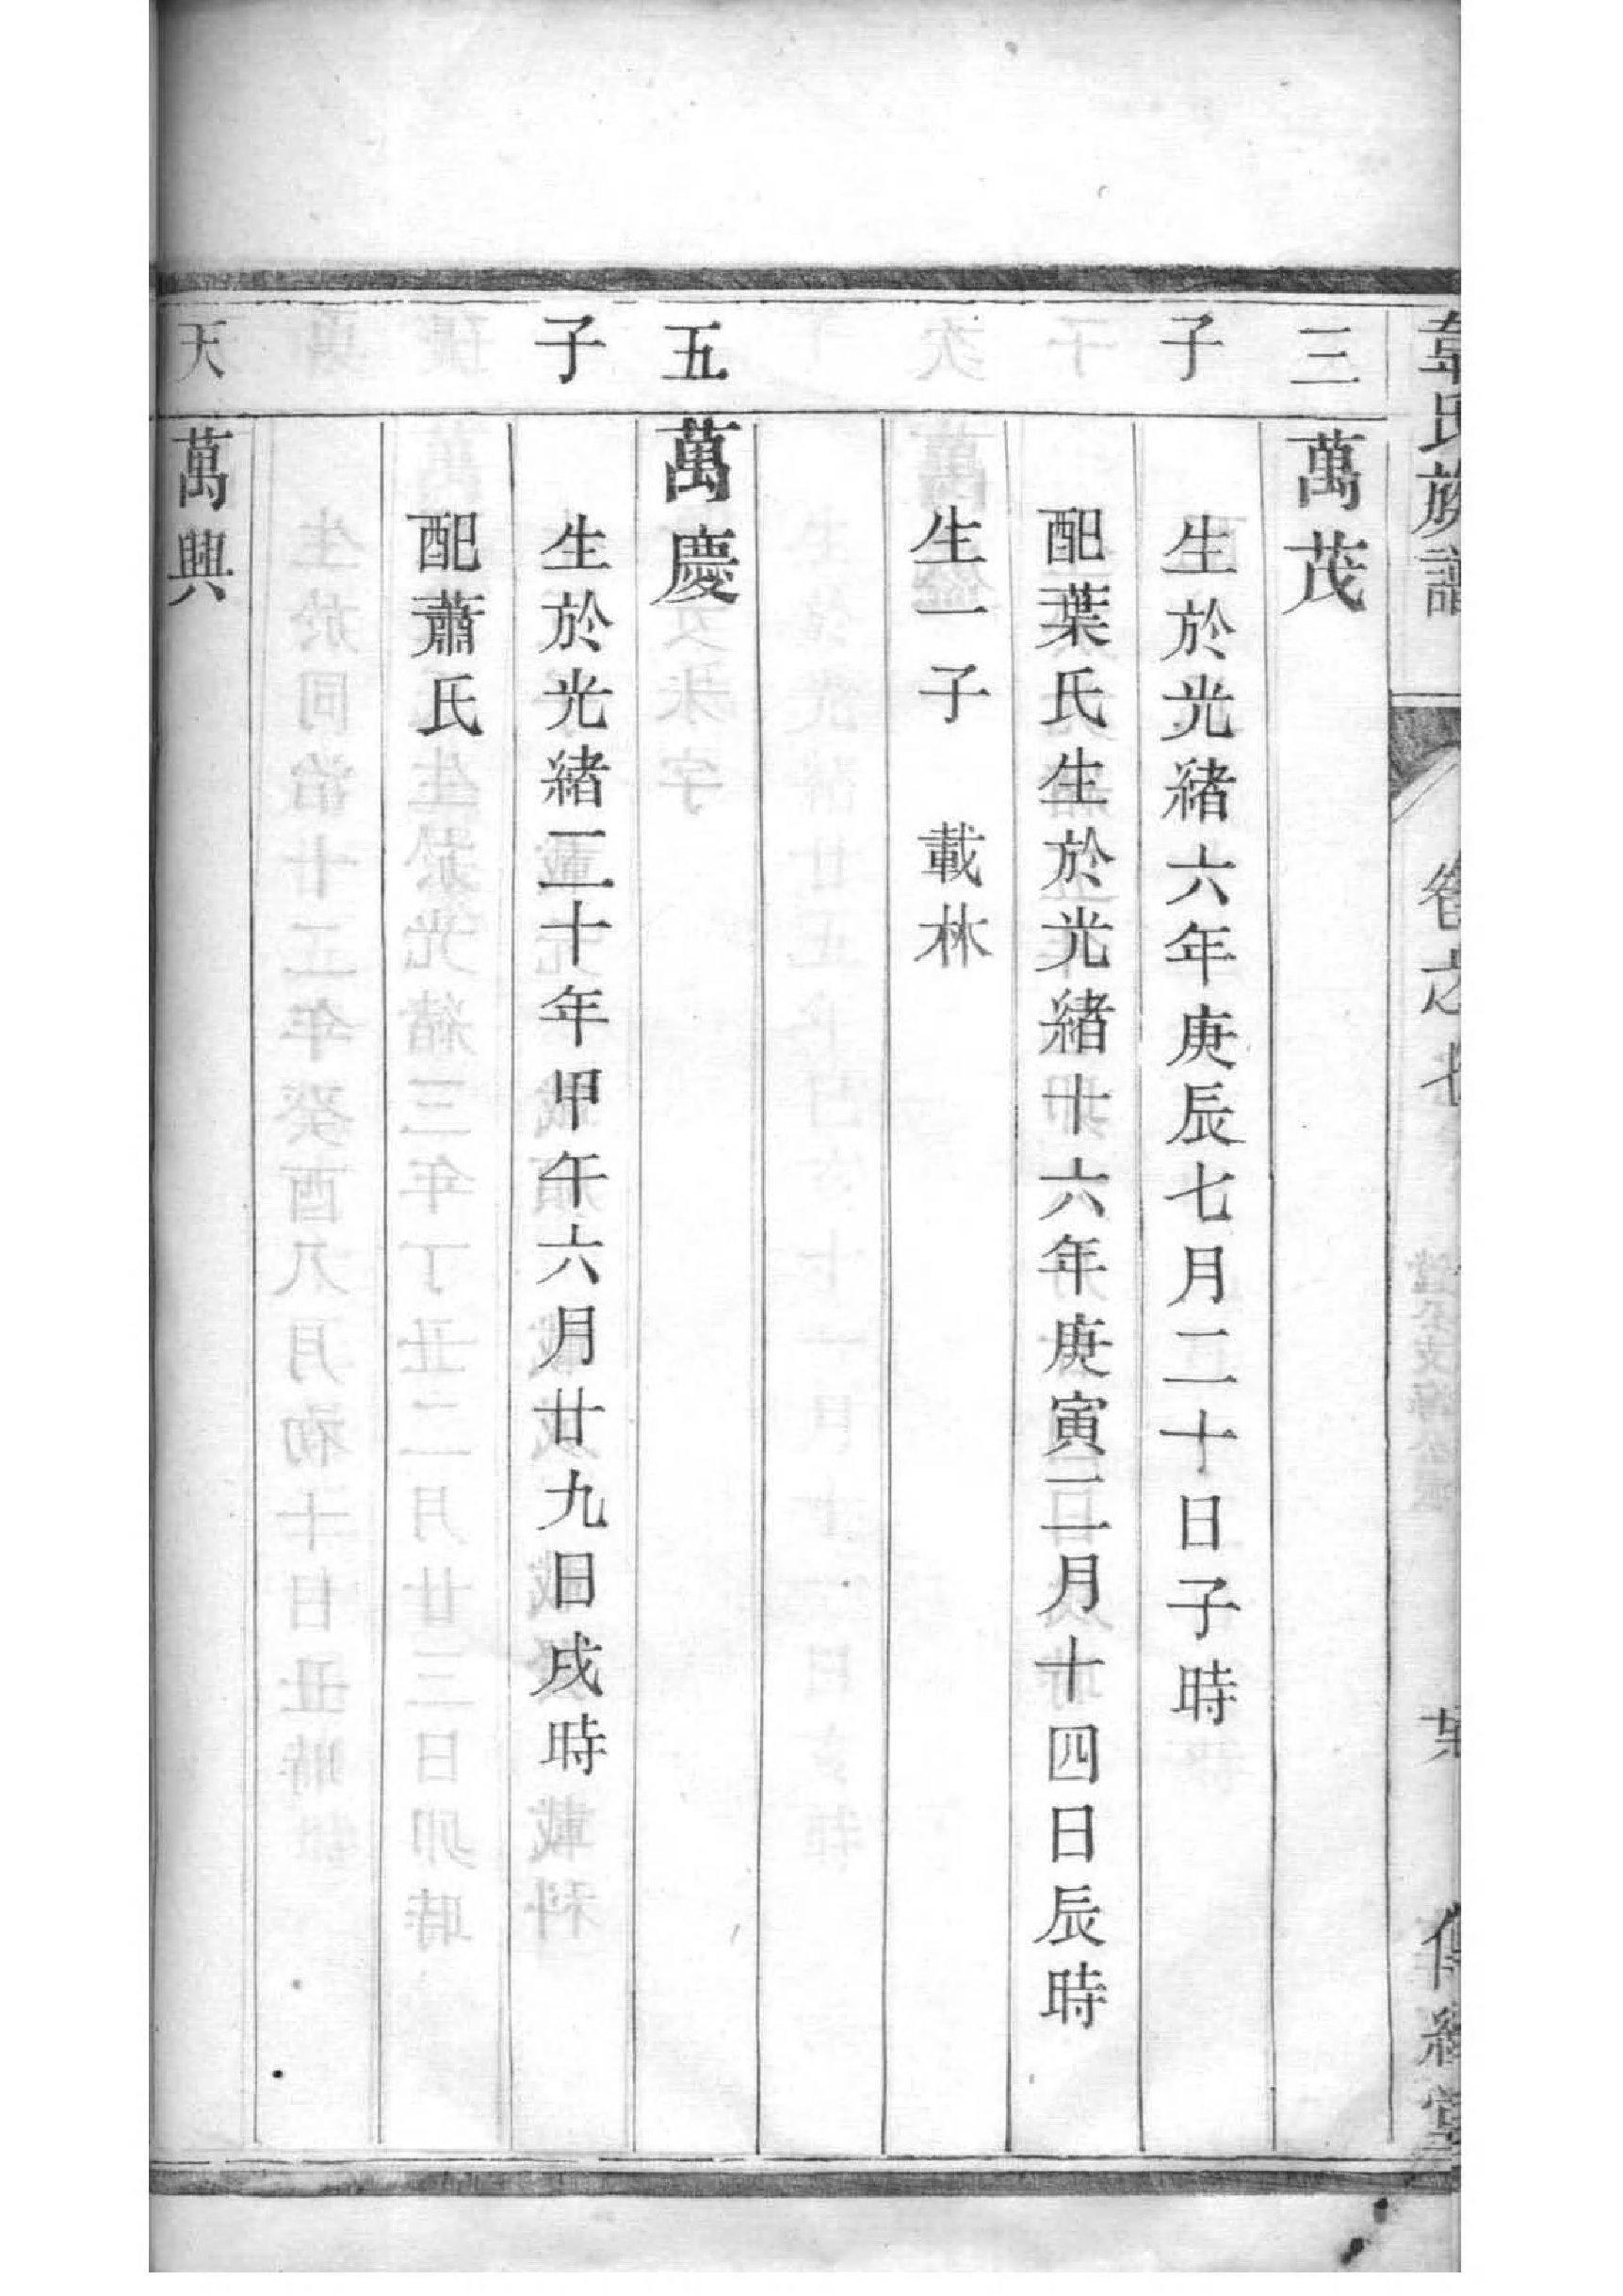 韋氏族譜 卷之七 傳經堂
三子 萬茂
生於光緒六年庚辰七月二十日子時
配葉氏生於光緒十六年庚寅二月十四日辰時
生一子 載林
五子 萬慶
生於光緒二十年甲午六月廿九日戌時
配蕭氏
天 萬興